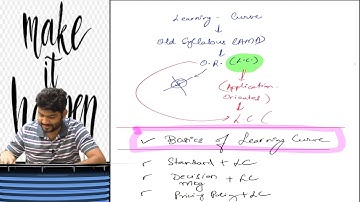 make
it
happen
Learning - Curve
Old Syllabus (AMA)
O.R. (L.C.)
(Application
Oriented)
L C C
✓ Basics of Learning Curve
Standard + LC
Decision + LC
Mkg
Pricing Policy + LC